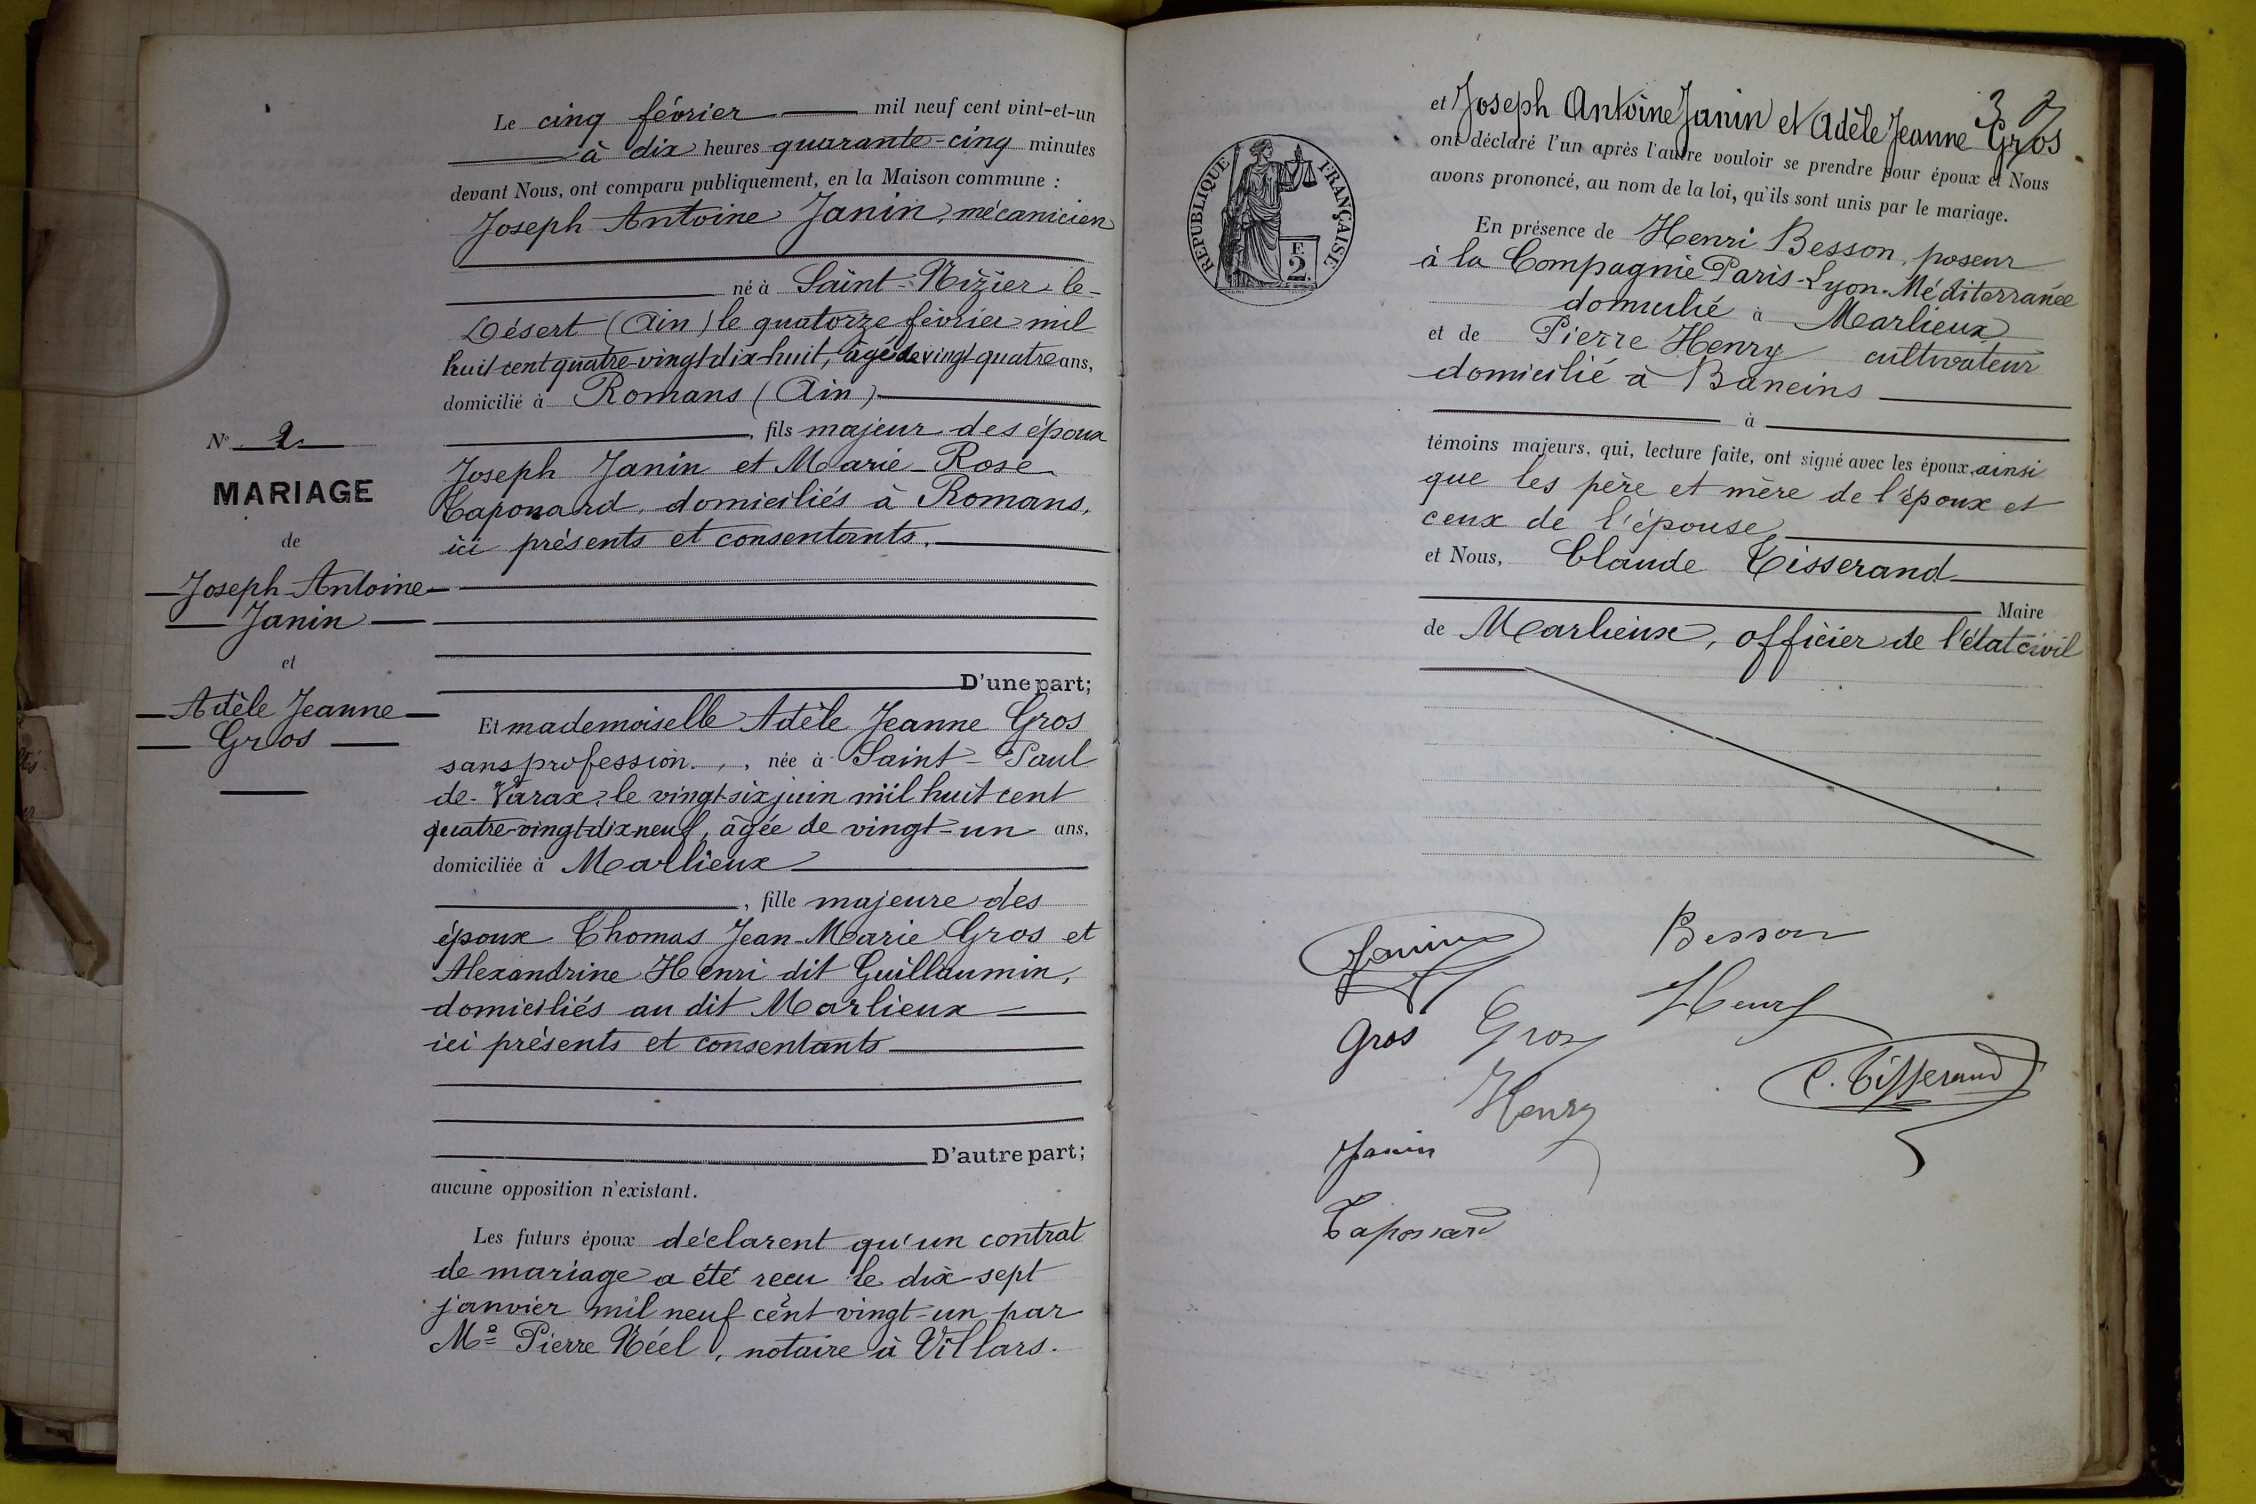 Le cinq février mil neuf cent vint-et-un
à dix heures quarante-cinq minutes
devant Nous, ont comparu publiquement, en la Maison commune :
Joseph Antoine Janin, mécanicien
né à Saint-Nizier-le-
Désert (Ain) le quatorze février mil
huit cent quatre-vingt-dix-huit, âgé de vingt quatre ans,
domicilié à Romans (Ain)
, fils majeur des époux
Joseph Janin et Marie-Rose
Taponard, domiciliés à Romans,
ici présents et consentants.
D'une part;
Et mademoiselle Adèle Jeanne Gros
sans profession, née à Saint-Paul
de-Varax, le vingt-six juin mil huit cent
quatre-vingt-dix neuf, âgée de vingt-un ans,
domiciliée à Marlieux
, fille majeure des
époux Thomas Jean-Marie Gros et
Alexandrine Henri dit Guillaumin,
domiciliés au dit Marlieux
ici présents et consentants
D'autre part;
aucune opposition n'existant.
Les futurs époux déclarent qu'un contrat
de mariage a été reçu le dix-sept
janvier mil neuf cent vingt-un par
Me Pierre Néel, notaire à Villars.
N° 2
MARIAGE
de
Joseph-Antoine
Janin
et
Adèle Jeanne
Gros
3
RÉPUBLIQUE FRANÇAISE
F.
2
et Joseph Antoine Janin et Adèle Jeanne Gros
ont déclaré l'un après l'autre vouloir se prendre pour époux et Nous
avons prononcé, au nom de la loi, qu'ils sont unis par le mariage.
En présence de Henri Besson, poseur
à la Compagnie Paris-Lyon-Méditerranée
domicilié à Marlieux
et de Pierre Henry cultivateur
domicilié à Baneins
à
témoins majeurs, qui, lecture faite, ont signé avec les époux, ainsi
que les père et mère de l'époux et
ceux de l'épouse
et Nous, Claude Tisserand
Maire
de Marlieux, officier de l'état civil
Janin
Besson
Henry
Gros
Gros
C. Tisserand
Henry
Janin
Taponard